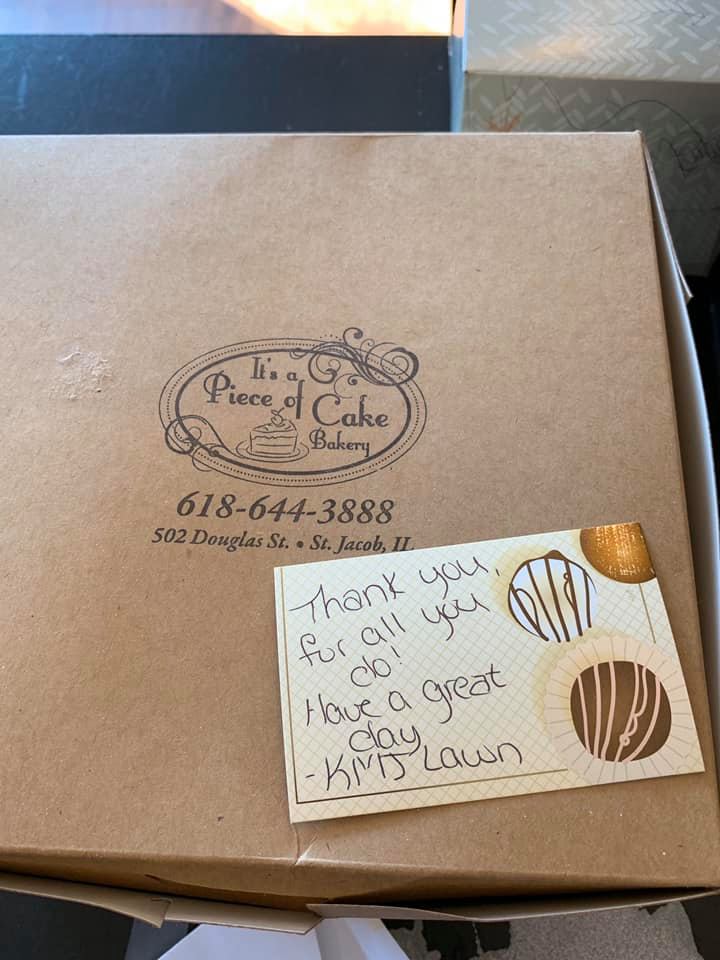 It's a
Piece of Cake
Bakery
618-644-3888
502 Douglas St. • St. Jacob, IL
Thank you,
for all you
do!
Have a great
day
-KMJ Lawn